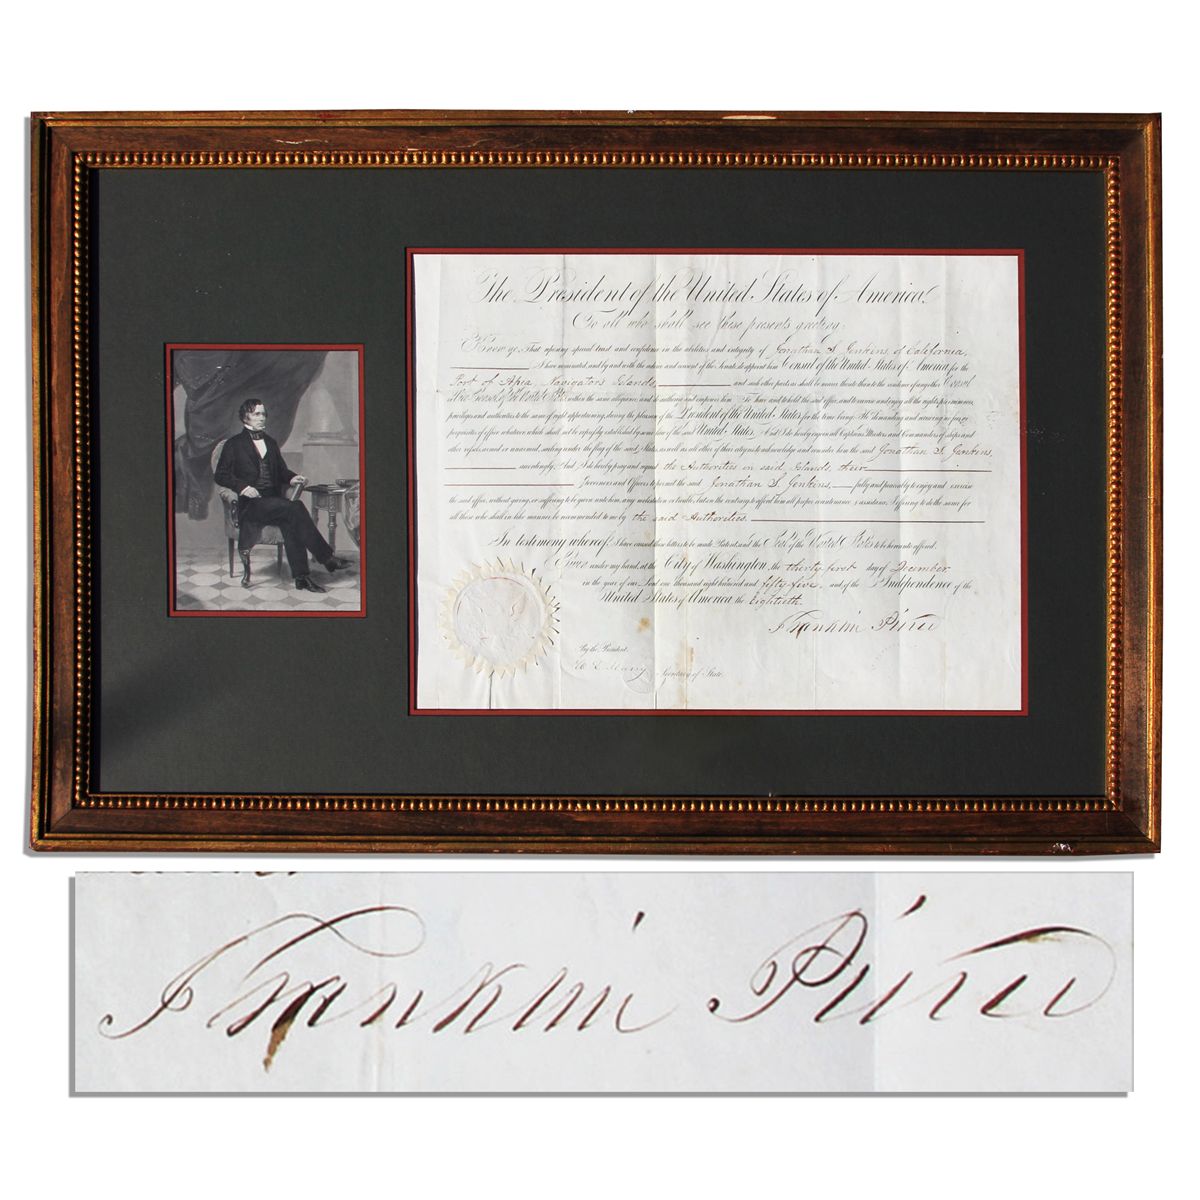 The President of the United States of America,
To all who shall see these presents greeting:
Know ye, That reposing special trust and confidence in the abilities and integrity of Jonathan S. Jenkins of California,
I have nominated, and by and with the advice and consent of the Senate do appoint him Consul of the United States of America for the
Port of Apia, Navigators Islands, and such other parts as shall be nearer thereto than to the residence of any other Consul
or Vice Consul of the United States within the same allegiance, and do authorize and empower him To have and to hold the said office, and to exercise and enjoy all the rights, preeminences,
privileges and authorities to the same of right appertaining, during the pleasure of the President of the United States for the time being: He demanding and receiving no fees or
perquisites of office whatever which shall not be expressly established by some law of the said United States. And I do hereby enjoin all Captains, Masters and Commanders of ships and
other vessels, armed or unarmed, sailing under the flag of the said States, as well as all other of their citizens to acknowledge and consider him the said Jonathan S. Jenkins,
accordingly. And I do hereby pray and request the Authorities in said Islands, their
Governors and Officers to permit the said Jonathan S. Jenkins, fully and peaceably to enjoy and exercise
the said office, without giving, or suffering to be given unto him, any molestation or trouble, but on the contrary to afford him all proper countenance & assistance, I offering to do the same for
all those who shall in like manner be recommended to me by the said Authorities.
In testimony whereof, I have caused these letters to be made Patent, and the Seal of the United States to be hereunto affixed.
Given under my hand, at the City of Washington, the thirty first day of December
in the year of our Lord one thousand eight hundred and fifty five, and of the Independence of the
United States of America, the Eightieth.
Franklin Pierce
By the President.
W. L. Marcy Secretary of State.
Franklin Pierce